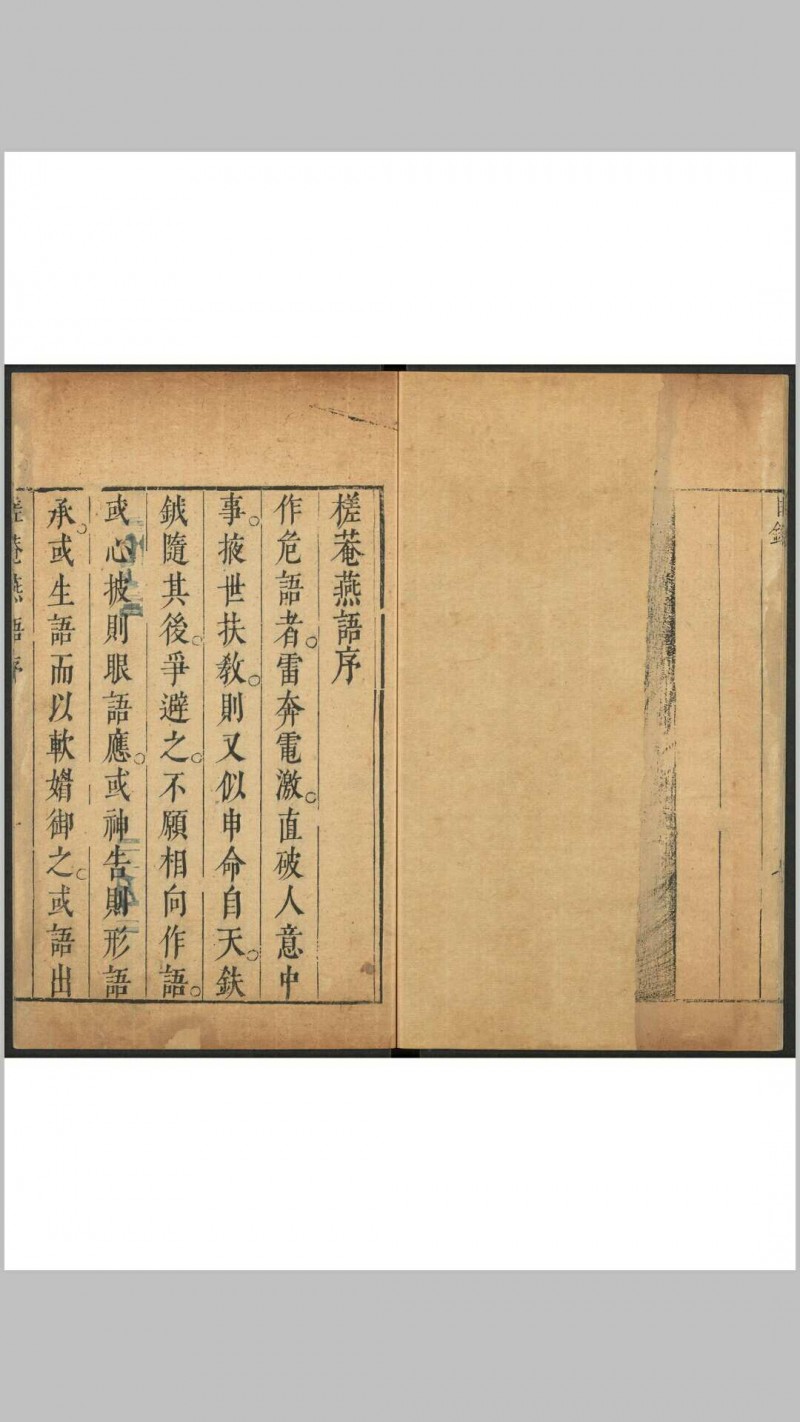 目錄
槎菴燕語序
作危語者。雷奔電激。直破人意中
事。掖世扶敎。則又似申命自天。鈇
鉞隨其後。爭避之。不願相向作語。
或心披則眼語應。或神吿則形語
承。或生語而以軟媚御之。或語出
槎菴燕語序
一